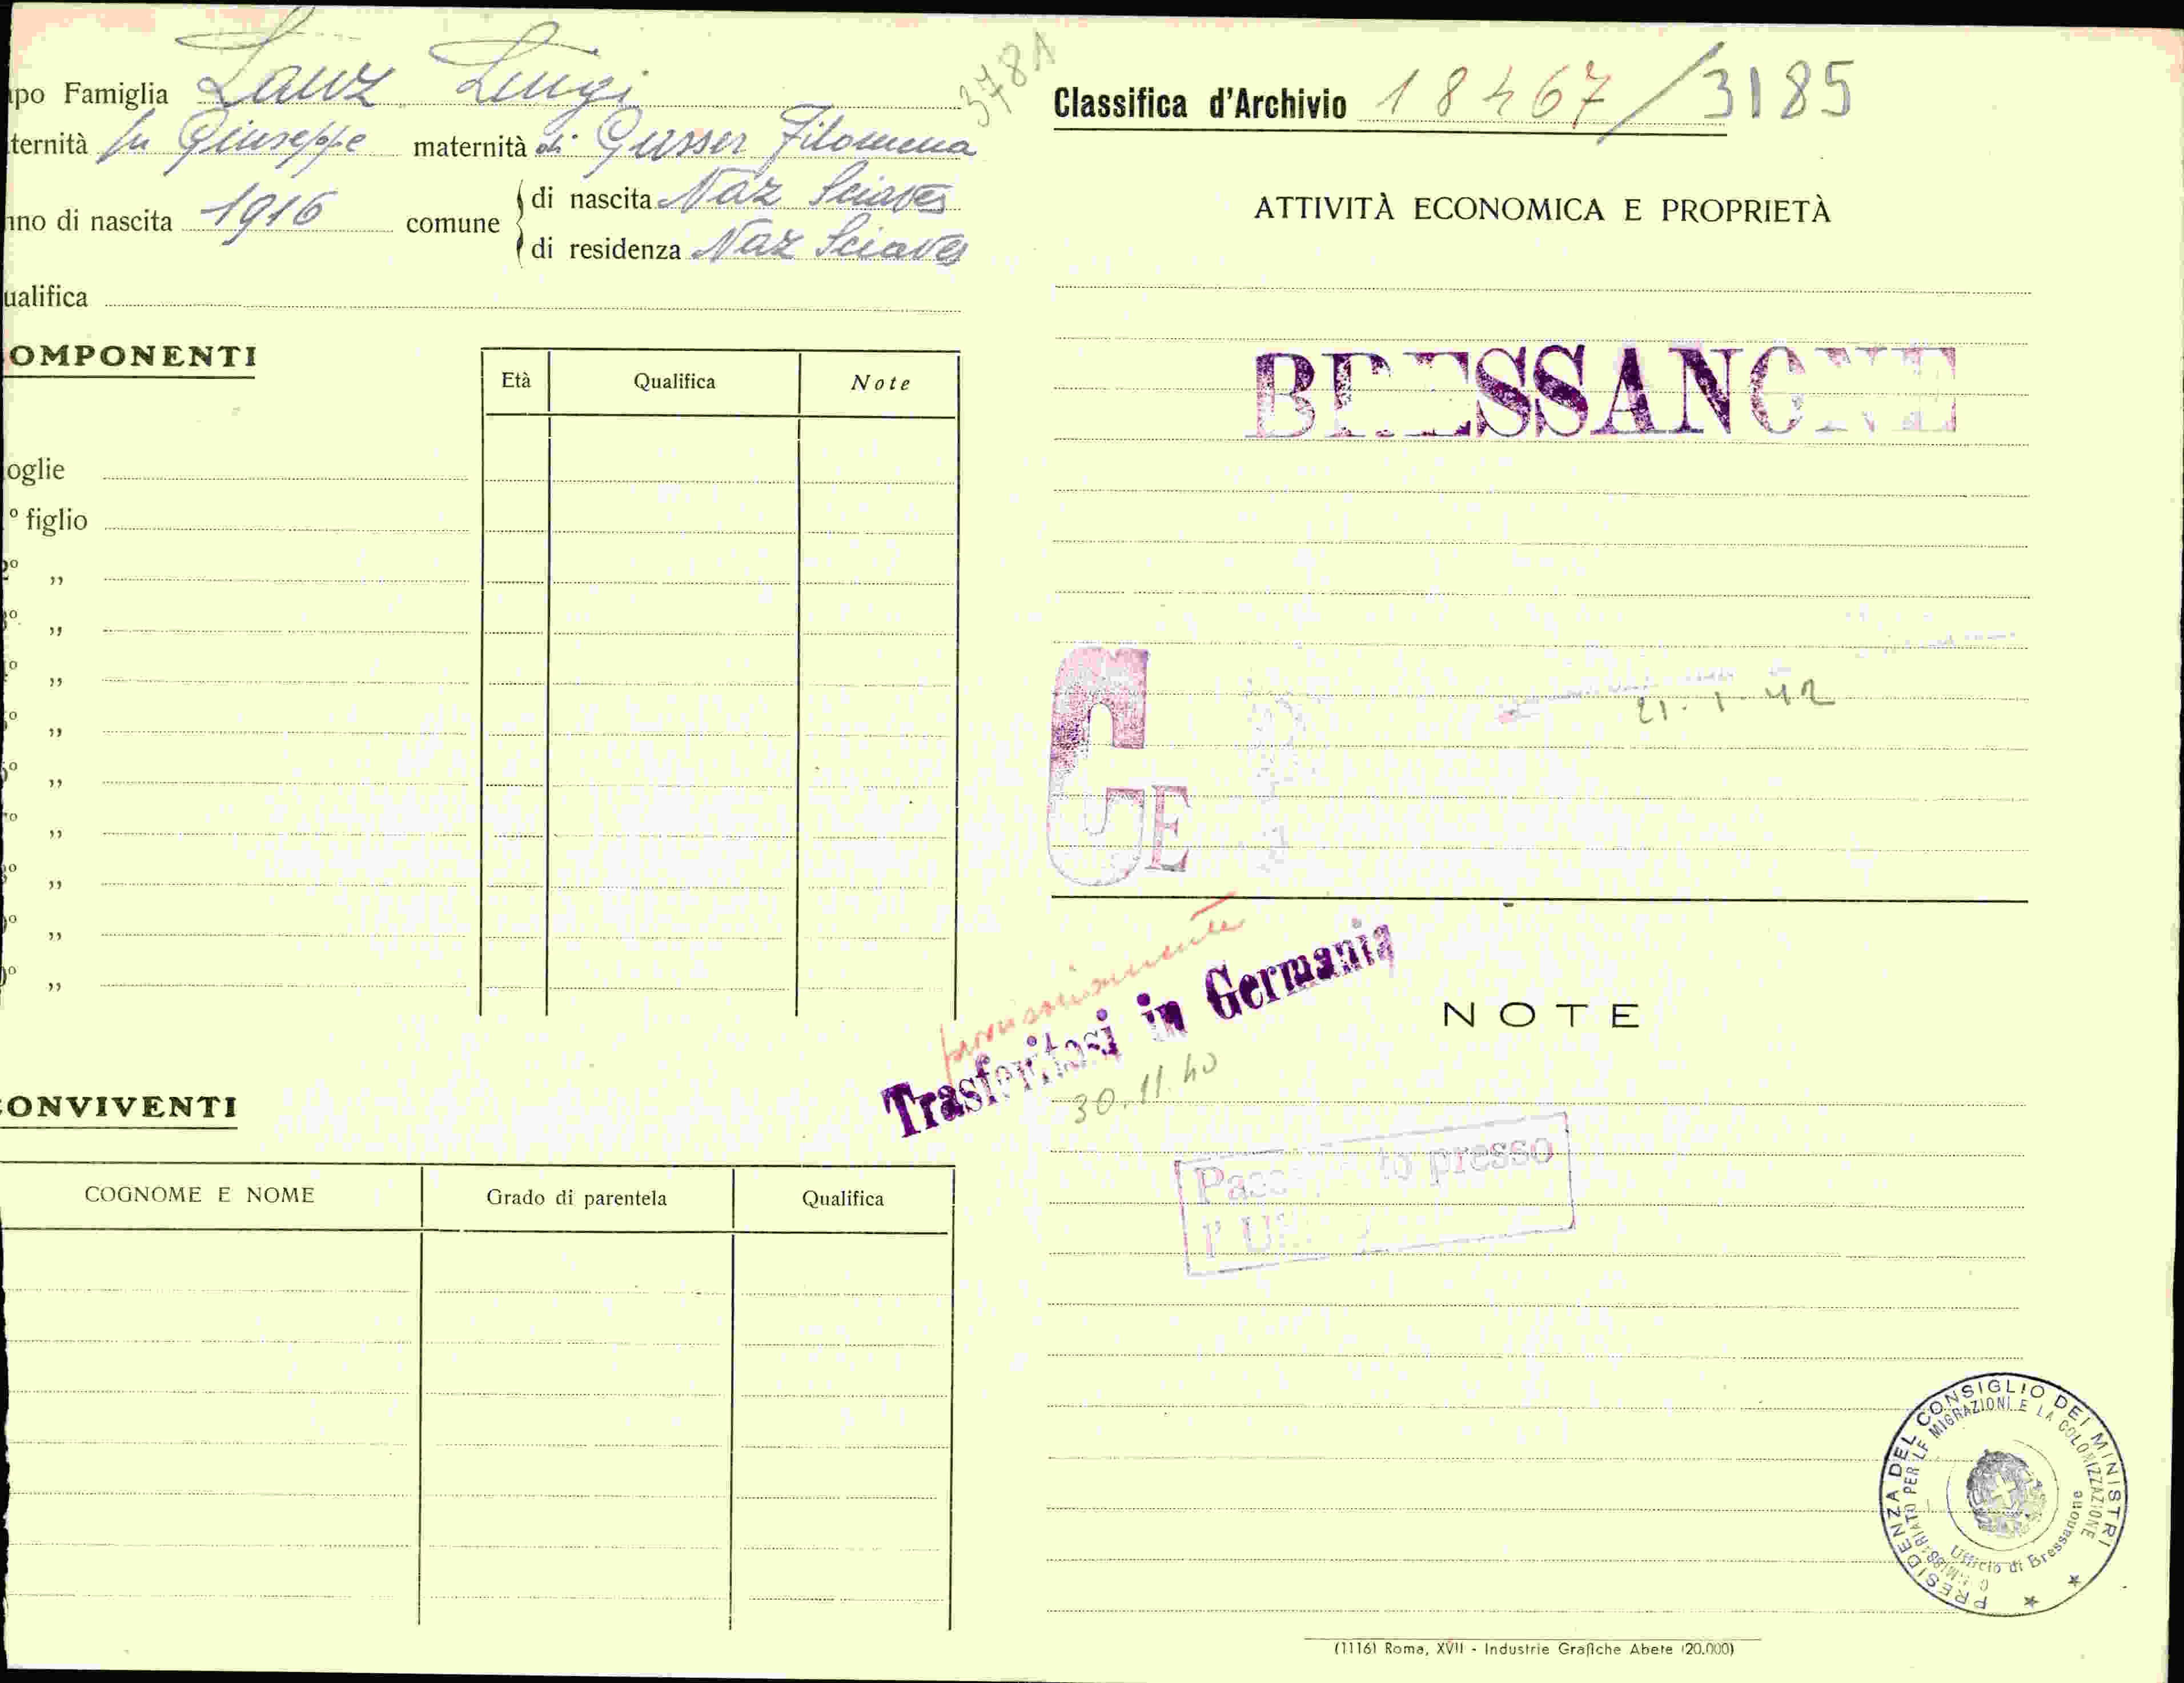 po Famiglia Lanz Luigi
3781
ternità fu Giuseppe maternità di Gusser Filomena
nno di nascita 1916 comune
di nascita Naz Sciaves
di residenza Naz Sciaves
ualifica
OMPONENTI
Età Qualifica Note
oglie
º figlio
2º „
º „
º „
º „
º „
º „
º „
º „
º „
ONVIVENTI
COGNOME E NOME Grado di parentela Qualifica
Classifica d'Archivio 18467/3185
ATTIVITÀ ECONOMICA E PROPRIETÀ
BRESSANONE
21-1-42
CE
provvisoriamente
Trasferitosi in Germania
30.11.40
NOTE
presso
l'
PRESIDENZA DEL CONSIGLIO DEI MINISTRI
PER LE MIGRAZIONI E LA COLONIZZAZIONE
Ufficio di Bressanone
(1116) Roma, XVII - Industrie Grafiche Abete (20.000)